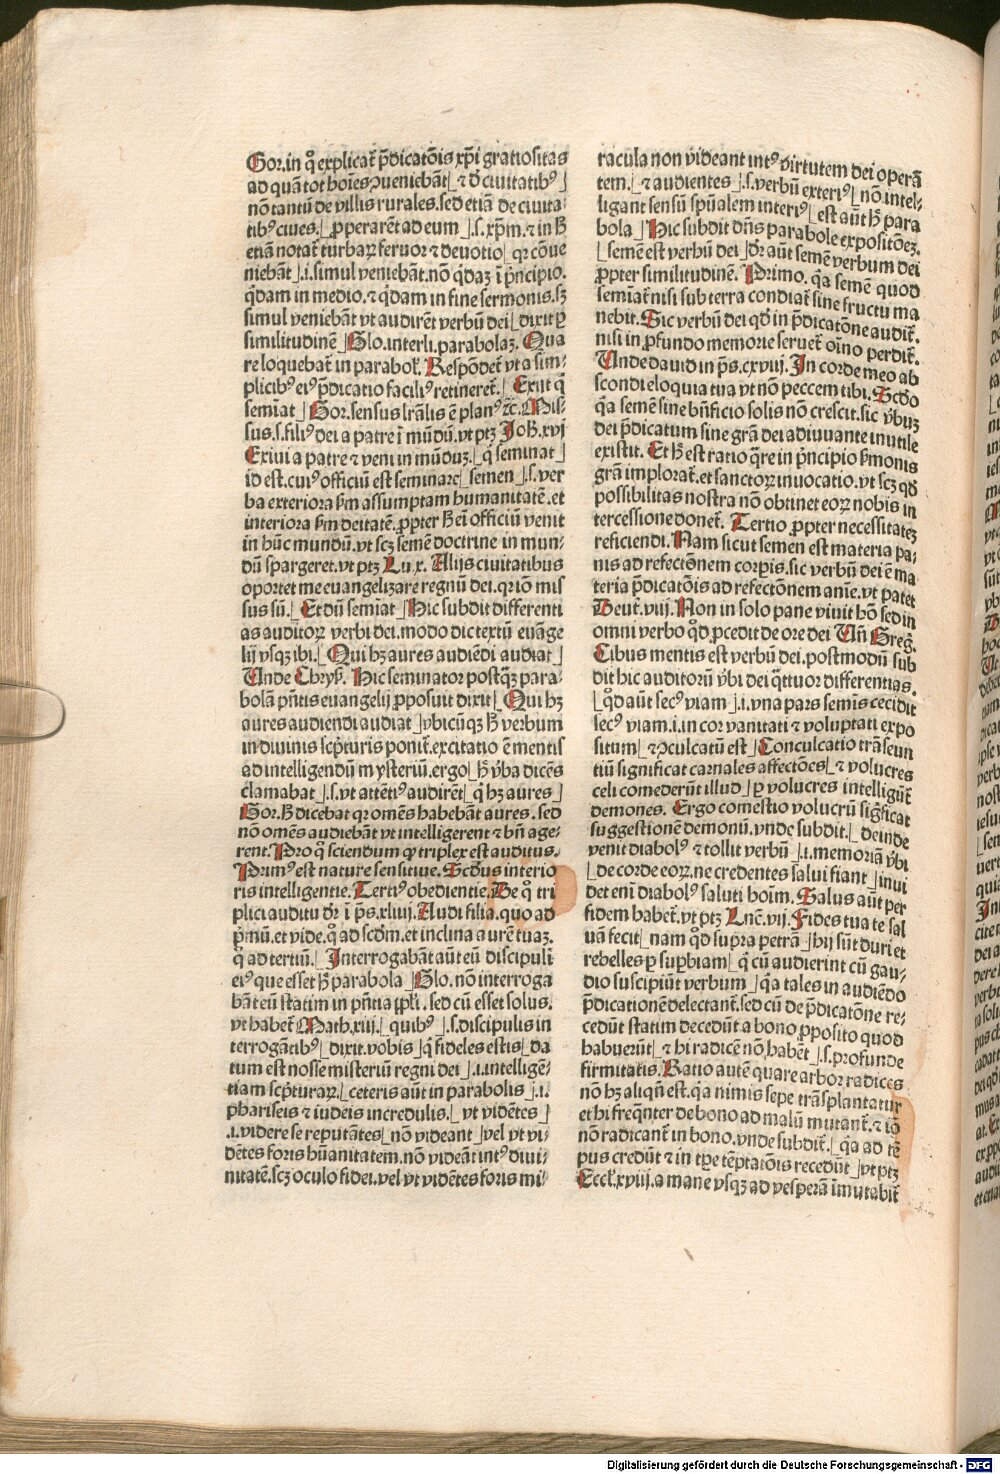 Gor.in q̄ explicat̄ p̄dicatōis xp̄i gratiositas
ad quā tot hoīes ꝯueniebāt⌊ ⁊ d̄ ciuitatibꝰ⌋
nō tantū de villis rurales.sed etiā de ciuita-
tibꝰ ciues.⌊ ꝓperarēt ad eum ⌋.s.xp̄m.⁊ in h̄
etiā notat̄ turbaꝝ feruor ⁊ deuotio⌊ qꝛ cōue
niebāt⌋.i.simul veniebāt.nō q̄daꝫ ī pͥncipio.
q̄dam in medio.⁊ q̄dam in fine sermonis.sꝫ
simul veniebāt vt audirēt verbū dei⌊ dixit ꝑ
similitudinē ⌋Glo.interli.parabolaꝫ. Qua
re loquebat̄ in parabol̓. Respōdet̄ vt a sim-
plicibꝰ eiꝰ p̄dicatio faciliꝰ retineret̄.⌊ Exijt q̄
semīat⌋ Gor.sensus lr̄alis ē planꝰ ⁊c̄. Mis-
sus.s.filiꝰ dei a patre ī mūdū.vt ptꝫ Joh̓.xvj
Exiui a patre ⁊ veni in mūduꝫ.⌊ q̄ seminat⌋
id est.cuiꝰ officiū est seminare⌊ semen ⌋.s.ver
ba exteriora ẜm assumptam humanitatē.et
interiora ẜm deitatē.ꝓpter h̄ eī officiū venit
in hūc mundū.vt scꝫ semē doctrine in mun-
dū spargeret.vt ptꝫ Lu.x. Alijs ciuitatibus
oportet me euangelizare regnū dei.qꝛ iō mis
sus sū.⌊ Et dū semīat ⌋Hic subdit differenti
as auditoꝝ verbi dei.modo dic textū euāge
lij vsqꝫ ibi.⌊ Qui hꝫ aures audiēdi audiat⌋
Unde Chrys̓. Hic seminator postq̄ꝫ para-
bolā pn̄tis euangelij ꝓposuit dixit⌊ Qui hꝫ
aures audiendi audiat ⌋vbicūqꝫ h̄ verbum
in diuinis scp̄turis ponit̄.excitatio ē mentis
ad intelligendū mysteriū.ergo⌊ h̄ v̓ba dicēs
clamabat⌋.s.vt attētiꝰ audirēt⌊ q̄ hꝫ aures⌋
Gor.h̄ dicebat qꝛ omēs habebāt aures.sed
nō omēs audiebāt vt intelligerent ⁊ bn̄ age-
rent. Pro q̄ sciendum qꝙ triplex est auditus.
Primꝰ est nature sensitiue. Scd̓us interio
ris intelligentie. Tertiꝰ obedientie. De q̄ tri
plici auditu dr̄ ī ps̄.xliiij. Audi filia.quo ad
pͥmū.et vide.q̄ ad scd̓m.et inclina aurē tuaꝫ.
q̄ ad tertiū.⌊ Interrogabāt aūt eū discipuli
eiꝰ que esset h̄ parabola ⌋Glo.nō interroga
bāt eū statim in pn̄tia ppl̓i.sed cū esset solus.
vt habet̄ Math.xiij.⌊ quibꝰ ⌋.s.discipulis in
terrogātibꝰ⌊ dixit.vobis⌋ q̄ fideles estis⌊ da
tum est nosse misteriū regni dei ⌋.i.intelligē-
tiam scp̄turaꝝ.⌊ ceteris aūt in parabolis ⌋.i.
phariseis ⁊ iudeis incredulis.⌊ vt vidētes ⌋
.i.videre se reputātes⌊ nō videant ⌋vel vt vi-
dētes foris hūanitatem.nō videāt intꝰ diui-
nitatē.scꝫ oculo fidei.vel vt vidētes foris mi-
racula non videant intꝰ virtutem dei operā
tem.⌊ ⁊ audientes ⌋.s.verbū exteriꝰ⌊ nō intel-
ligant sensū spūalem interiꝰ⌊ est aūt h̄ para
bola ⌋Hic subdit dn̄s parabole expositōeꝫ.
⌊semē est verbū dei ⌋dr̄ aūt semē verbum dei
ꝓpter similitudinē. Primo.q̄a semē quod
semīat̄ nisi sub terra condiat̄ sine fructu ma
nebit. Sic verbū dei qd̓ in p̄dicatōne audit̄.
nisi in ꝓfundo memorie seruet̄ oīno perdit̄.
Unde dauid in ps̄.cxviij. In corde meo ab
scondi eloquia tua vt non peccem tibi. Scd̓o
q̄a semē sine bn̄ficio solis nō crescit.sic v̓buꝫ
dei p̄dicatum sine gr̄a dei adiuuante inutile
existit. Et h̄ est ratio q̄re in pͥncipio ẜmonis
gr̄am implorat̄.et sanctoꝝ inuocatio.vt scꝫ qd̓
possibilitas nostra nō obtinet eoꝝ nobis in
tercessione donet̄. Tertio ꝓpter necessitateꝫ
reficiendi. Nam sicut semen est materia pa-
nis ad refectōnem corꝑis.sic verbū dei ē ma
teria p̄dicatōis ad refectōnem anīe.vt patet
Deut̄.viij. Non in solo pane viuit hō sed in
omni verbo qd̓ ꝓcedit de ore dei Un̄ Greg̓.
Cibus mentis est verbū dei.postmodū sub
dit hic auditorū v̓bi dei q̄ttuor differentias.
⌊qd̓ aūt secꝰ viam ⌋.i.vna pars semīs cecidit
secꝰ viam.i.in cor vanitati ⁊ voluptati expo
situm⌊ ⁊ ꝯculcatū est ⌋Conculcatio trāseun
tiū significat carnales affectōes⌊ ⁊ volucres
celi comederūt illud⌋ ꝑ volucres intelligūt̄
demones. Ergo comestio volucrū sigͥficat
suggestionē demonū.vnde subdit.⌊ deinde
venit diabolꝰ ⁊ tollit verbū ⌋.i.memoriā v̓bi
⌊de corde eoꝝ.ne credentes salui fiant ⌋inui
det enī diabolꝰ saluti hoīm. Salus aūt per
fidem habet̄.vt ptꝫ Luc̄.vij. Fides tua te sal
uā fecit⌊ nam qd̓ supra petrā ⌋hij sūt duri et
rebelles ꝑ suꝑbiam⌊ q̄ cū audierint cū gau-
dio suscipiūt verbum ⌋q̄a tales in audiēdo
p̄dicationē delectant̄.sed cū de p̄dicatōne re-
cedūt statim decedūt a bono ꝓposito quod
habuerūt⌊ ⁊ hi radicē nō habēt ⌋.s.profunde
firmitatis. Ratio autē quare arbor radices
nō hꝫ aliqn̄ est.q̄a nimis sepe trāsplantatur
et hi freq̄nter de bono ad malū mutant̄.⁊ iō
nō radicant̄ in bono.vnde subdit̄.⌊ q̄a ad tē
pus credūt ⁊ in tꝑe tēptatōis recedūt ⌋vt ptꝫ
Eccl̓.xviij.a mane vsqꝫ ad vesperā īmutabit̄
Digitalisierung gefördert durch die Deutsche Forschungsgemeinschaft - DFG